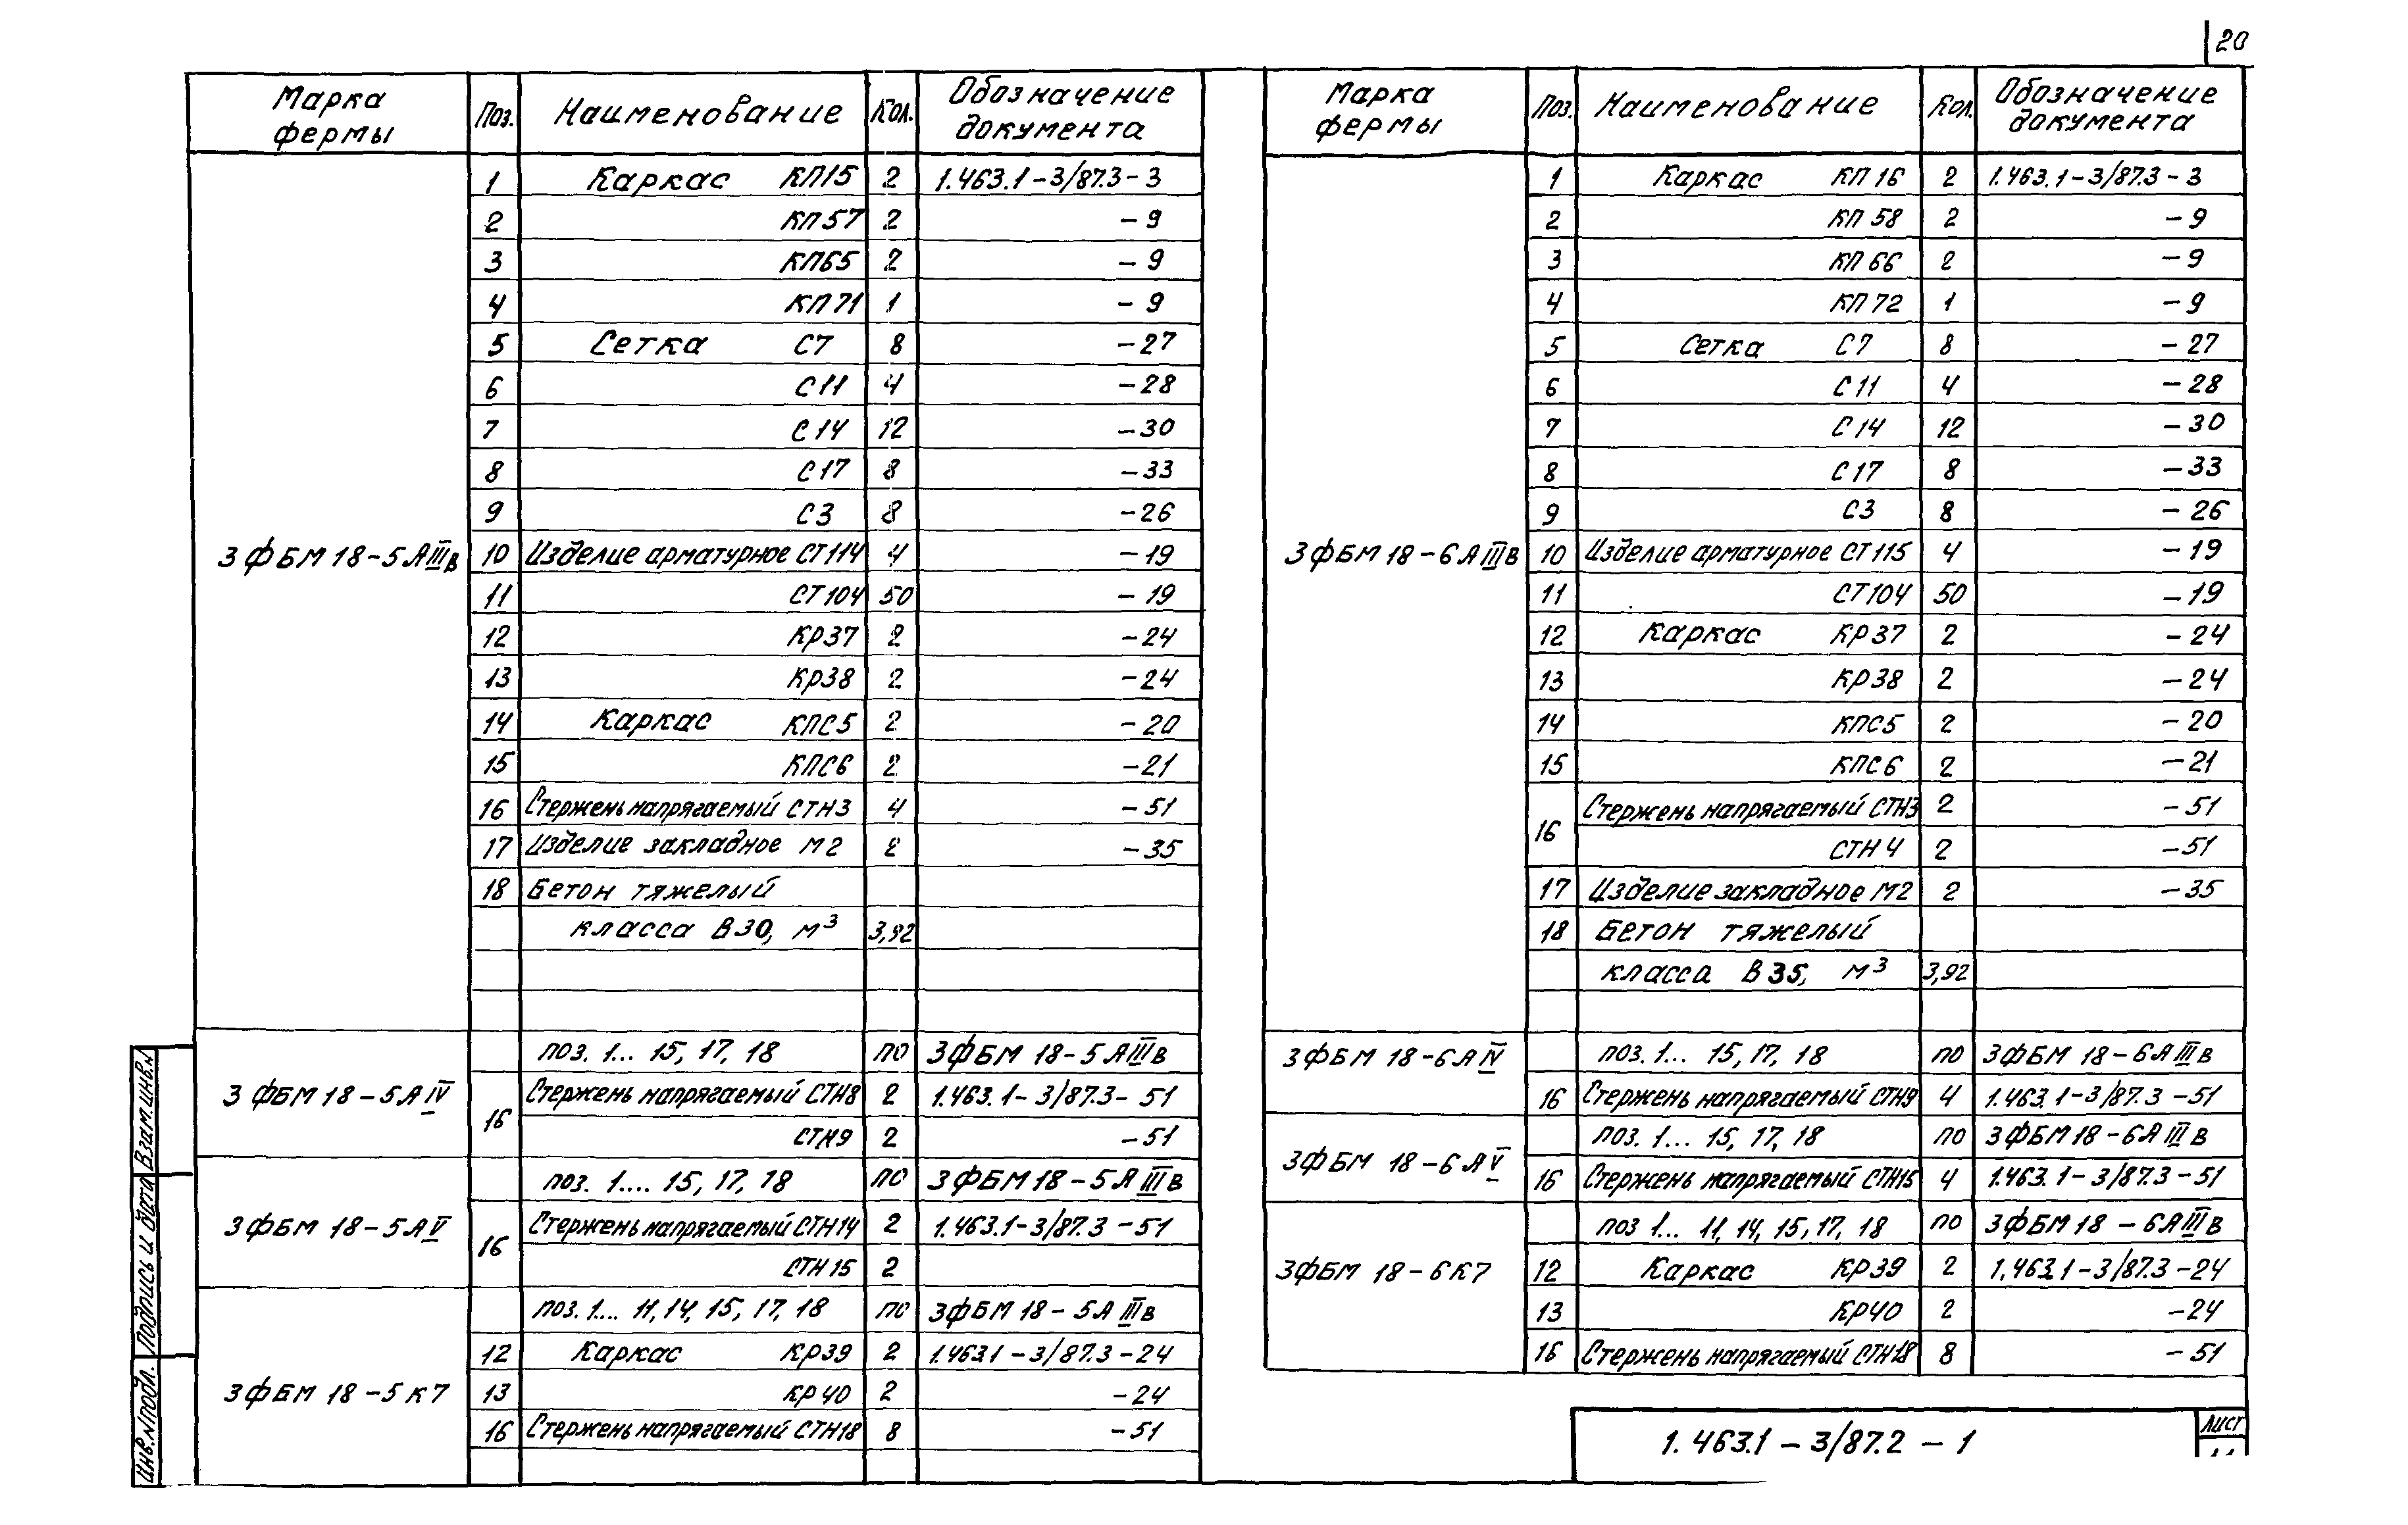 20
Марка фермы | Поз. | Наименование | Кол. | Обозначение документа
3ФБМ 18-5АIIIв
1 | Каркас КП15 | 2 | 1.463.1-3/87.3-3
2 | КП57 | 2 | -9
3 | КП65 | 2 | -9
4 | КП71 | 1 | -9
5 | Сетка С7 | 8 | -27
6 | С11 | 4 | -28
7 | С14 | 12 | -30
8 | С17 | 8 | -33
9 | С3 | 8 | -26
10 | Изделие арматурное СТ114 | 4 | -19
11 | СТ104 | 50 | -19
12 | КР37 | 2 | -24
13 | КР38 | 2 | -24
14 | Каркас КПС5 | 2 | -20
15 | КПС6 | 2 | -21
16 | Стержень напрягаемый СТН3 | 4 | -51
17 | Изделие закладное М2 | 2 | -35
18 | Бетон тяжелый
класса В30, м³ | 3,92
3ФБМ 18-5АIV
поз. 1... 15, 17, 18 | по | 3ФБМ 18-5АIIIв
16 | Стержень напрягаемый СТН8 | 2 | 1.463.1-3/87.3-51
СТН9 | 2 | -51
3ФБМ 18-5АV
поз. 1.... 15, 17, 18 | по | 3ФБМ 18-5АIIIв
16 | Стержень напрягаемый СТН14 | 2 | 1.463.1-3/87.3-51
СТН15 | 2
3ФБМ 18-5К7
поз. 1.... 11, 14, 15, 17, 18 | по | 3ФБМ 18-5АIIIв
12 | Каркас КР39 | 2 | 1.463.1-3/87.3-24
13 | КР40 | 2 | -24
16 | Стержень напрягаемый СТН18 | 8 | -51
Марка фермы | Поз. | Наименование | Кол. | Обозначение документа
3ФБМ 18-6АIIIв
1 | Каркас КП16 | 2 | 1.463.1-3/87.3-3
2 | КП58 | 2 | -9
3 | КП66 | 2 | -9
4 | КП72 | 1 | -9
5 | Сетка С7 | 8 | -27
6 | С11 | 4 | -28
7 | С14 | 12 | -30
8 | С17 | 8 | -33
9 | С3 | 8 | -26
10 | Изделие арматурное СТ115 | 4 | -19
11 | СТ104 | 50 | -19
12 | Каркас КР37 | 2 | -24
13 | КР38 | 2 | -24
14 | КПС5 | 2 | -20
15 | КПС6 | 2 | -21
16 | Стержень напрягаемый СТН3 | 2 | -51
СТН4 | 2 | -51
17 | Изделие закладное М2 | 2 | -35
18 | Бетон тяжелый
класса В35, м³ | 3,92
3ФБМ 18-6АIV
поз. 1... 15, 17, 18 | по | 3ФБМ 18-6АIIIв
16 | Стержень напрягаемый СТН9 | 4 | 1.463.1-3/87.3-51
3ФБМ 18-6АV
поз. 1... 15, 17, 18 | по | 3ФБМ 18-6АIIIв
16 | Стержень напрягаемый СТН15 | 4 | 1.463.1-3/87.3-51
3ФБМ 18-6К7
поз 1... 11, 14, 15, 17, 18 | по | 3ФБМ 18-6АIIIв
12 | Каркас КР39 | 2 | 1.463.1-3/87.3-24
13 | КР40 | 2 | -24
16 | Стержень напрягаемый СТН18 | 8 | -51
1.463.1-3/87.2-1
Лист
Взам.инв.№
Подпись и дата
Инв.№подл.